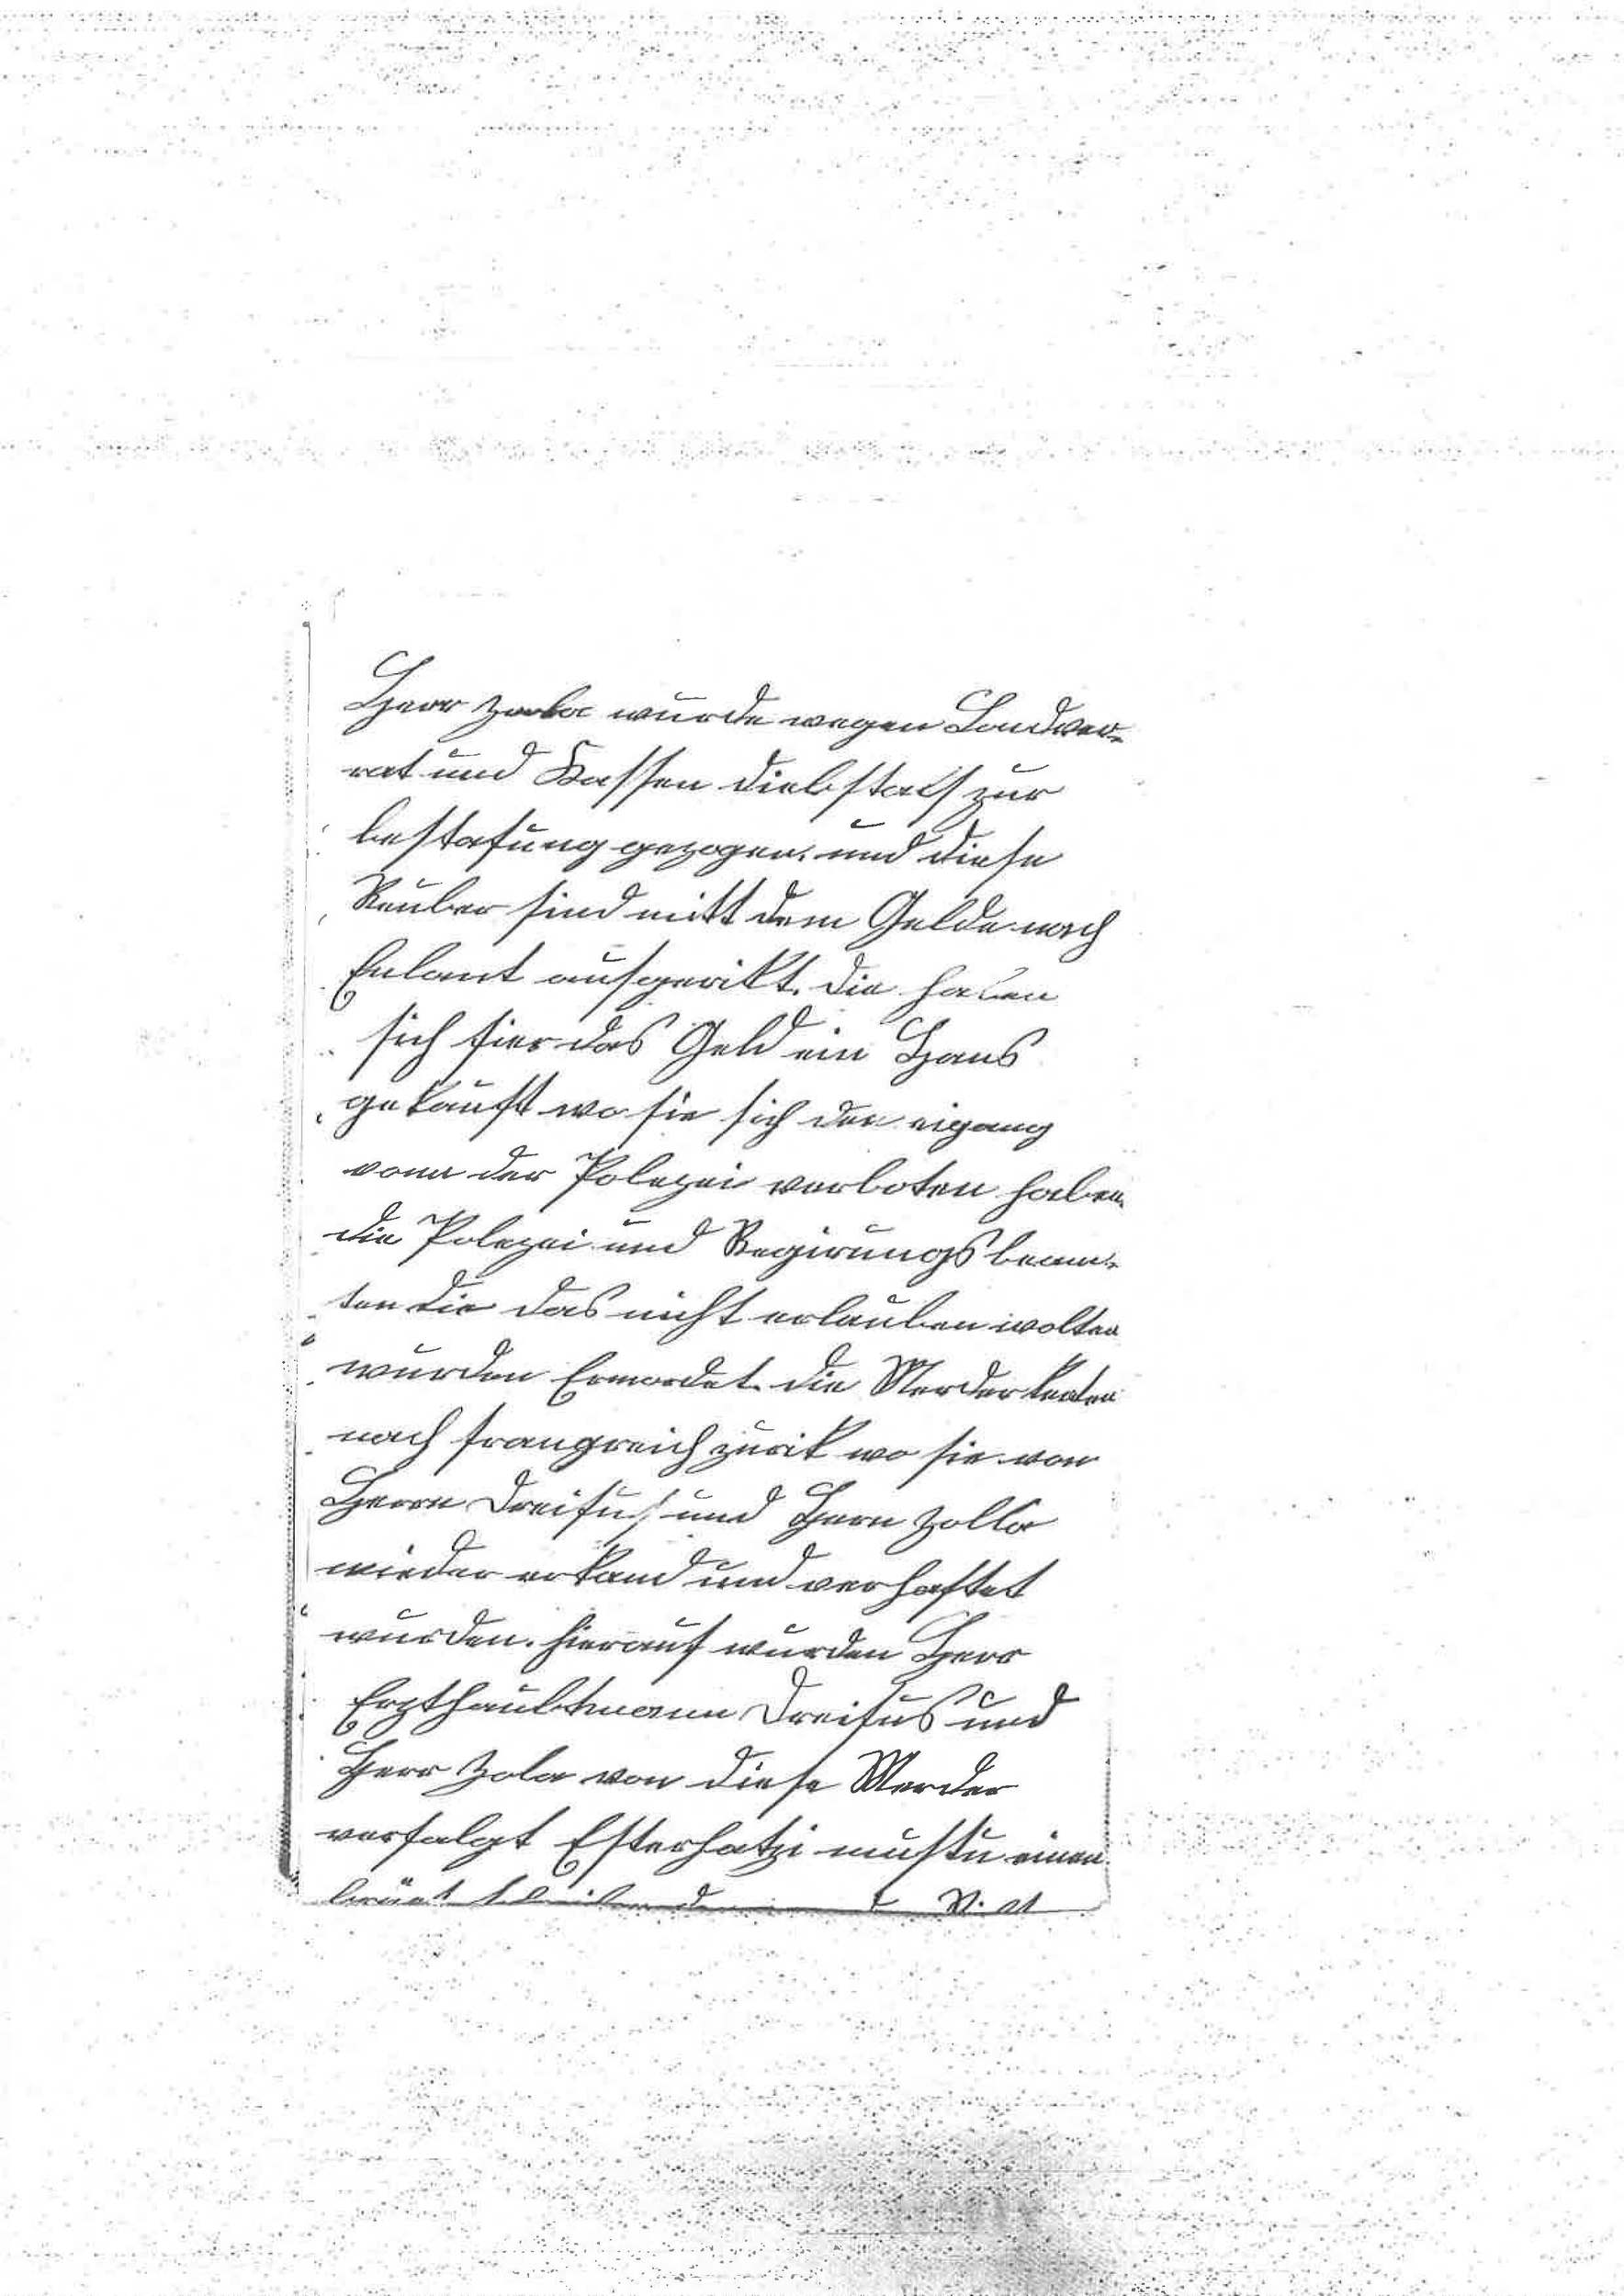 Herr Zola wurde wegen Landver-
rat und Kassen diebstals zur
bestafung gezogen. und diese
Reuber sind mitt dem Gelde nach
Enlant ausgerikt. die haben
sich fier das Geld ein Haus
gekauft wo sie sich den eigang
vonn der Polezei verboten haben.
die Polezei und Regirungsbeam-
ten die das nicht erlauben wolten
wurden Ermordet. die Merder
nach frangreich zurik wo sie von
Herrn Dreifus und Hern Zolla
wieder erkand und verhaftet
wurden. hierauf wurden Herr
Erzthaubtmann Dreifus und
Herr Zola von diese Merder
verfalgt Esterhatzi muste einen